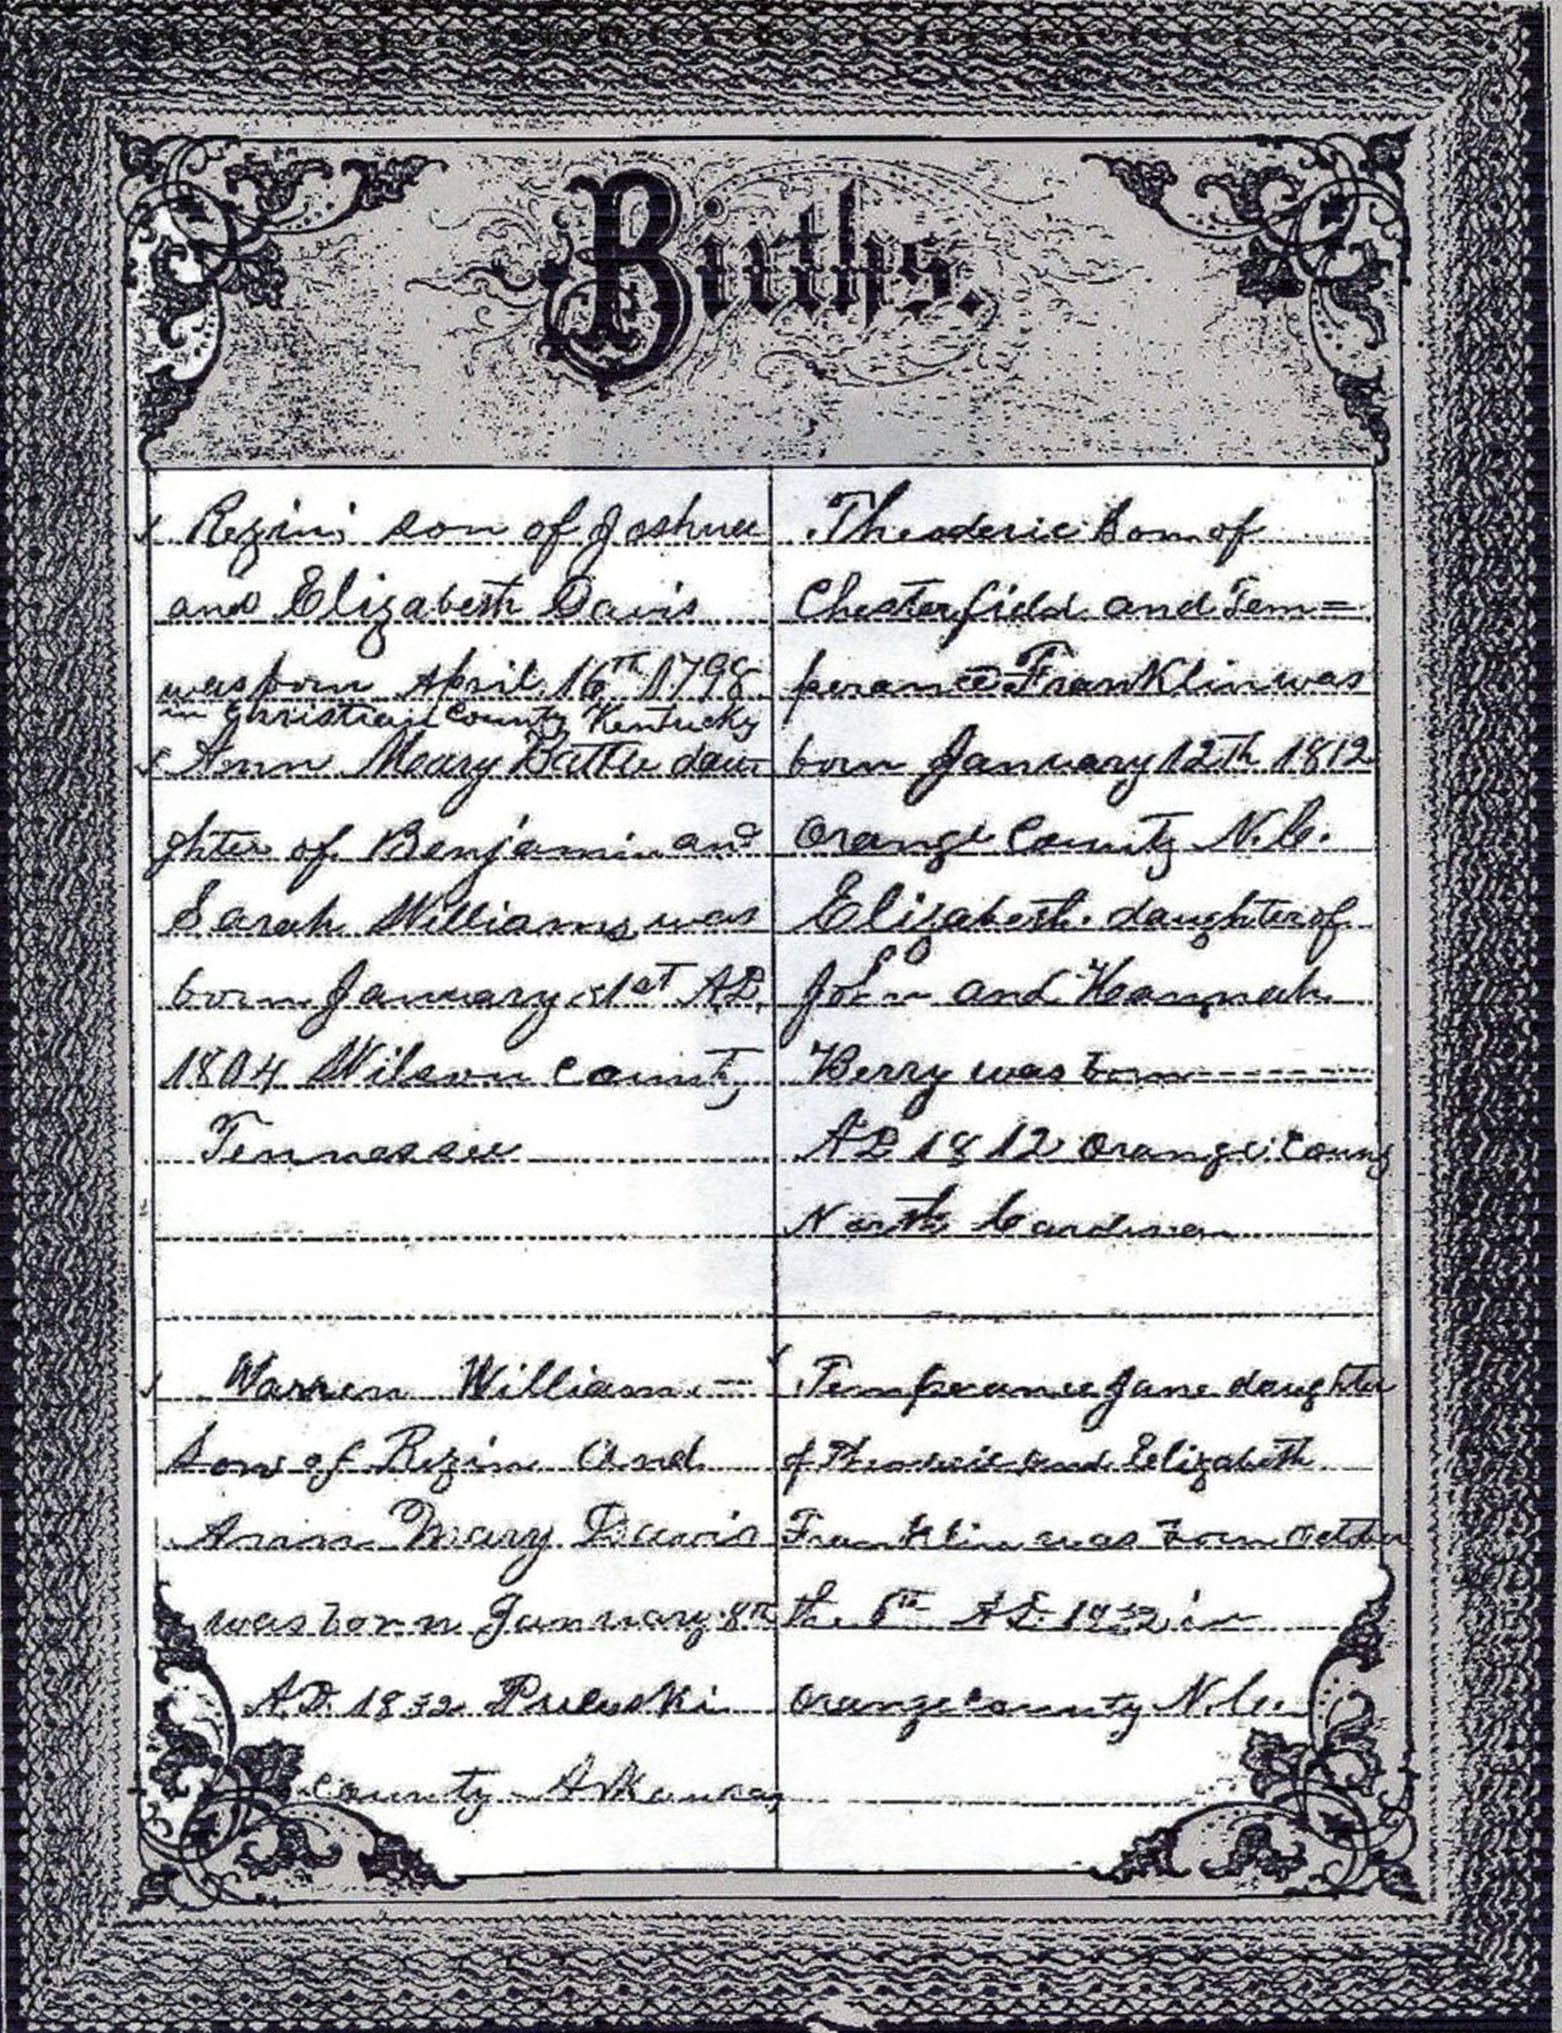 Births.
Rezin son of Joshua
and Elizabeth Davis
was born April 16th 1798
in Christian County Kentucky
Ann Mary Battle dau
ghter of Benjamin and
Sarah Williams was
born January 1st AD.
1804 Wilson County
Tennessee
Warren William
Son of Rezin And
Ann Mary Davis
was born January 8th
A.D. 1832 Puluski
County Arkansas
Theoderic Son of
Chesterfield and Tem=
perance Franklin was
born January 12th 1812
Orange County N.C.
Elizabeth daughter of
John and Hannah
Berry was born
AD 1812 Orange County
North Carolina
Temperance Jane daughter
of Theoderic and Elizabeth
Franklin was born October
the AD. 1832 in
Orange County N.C.